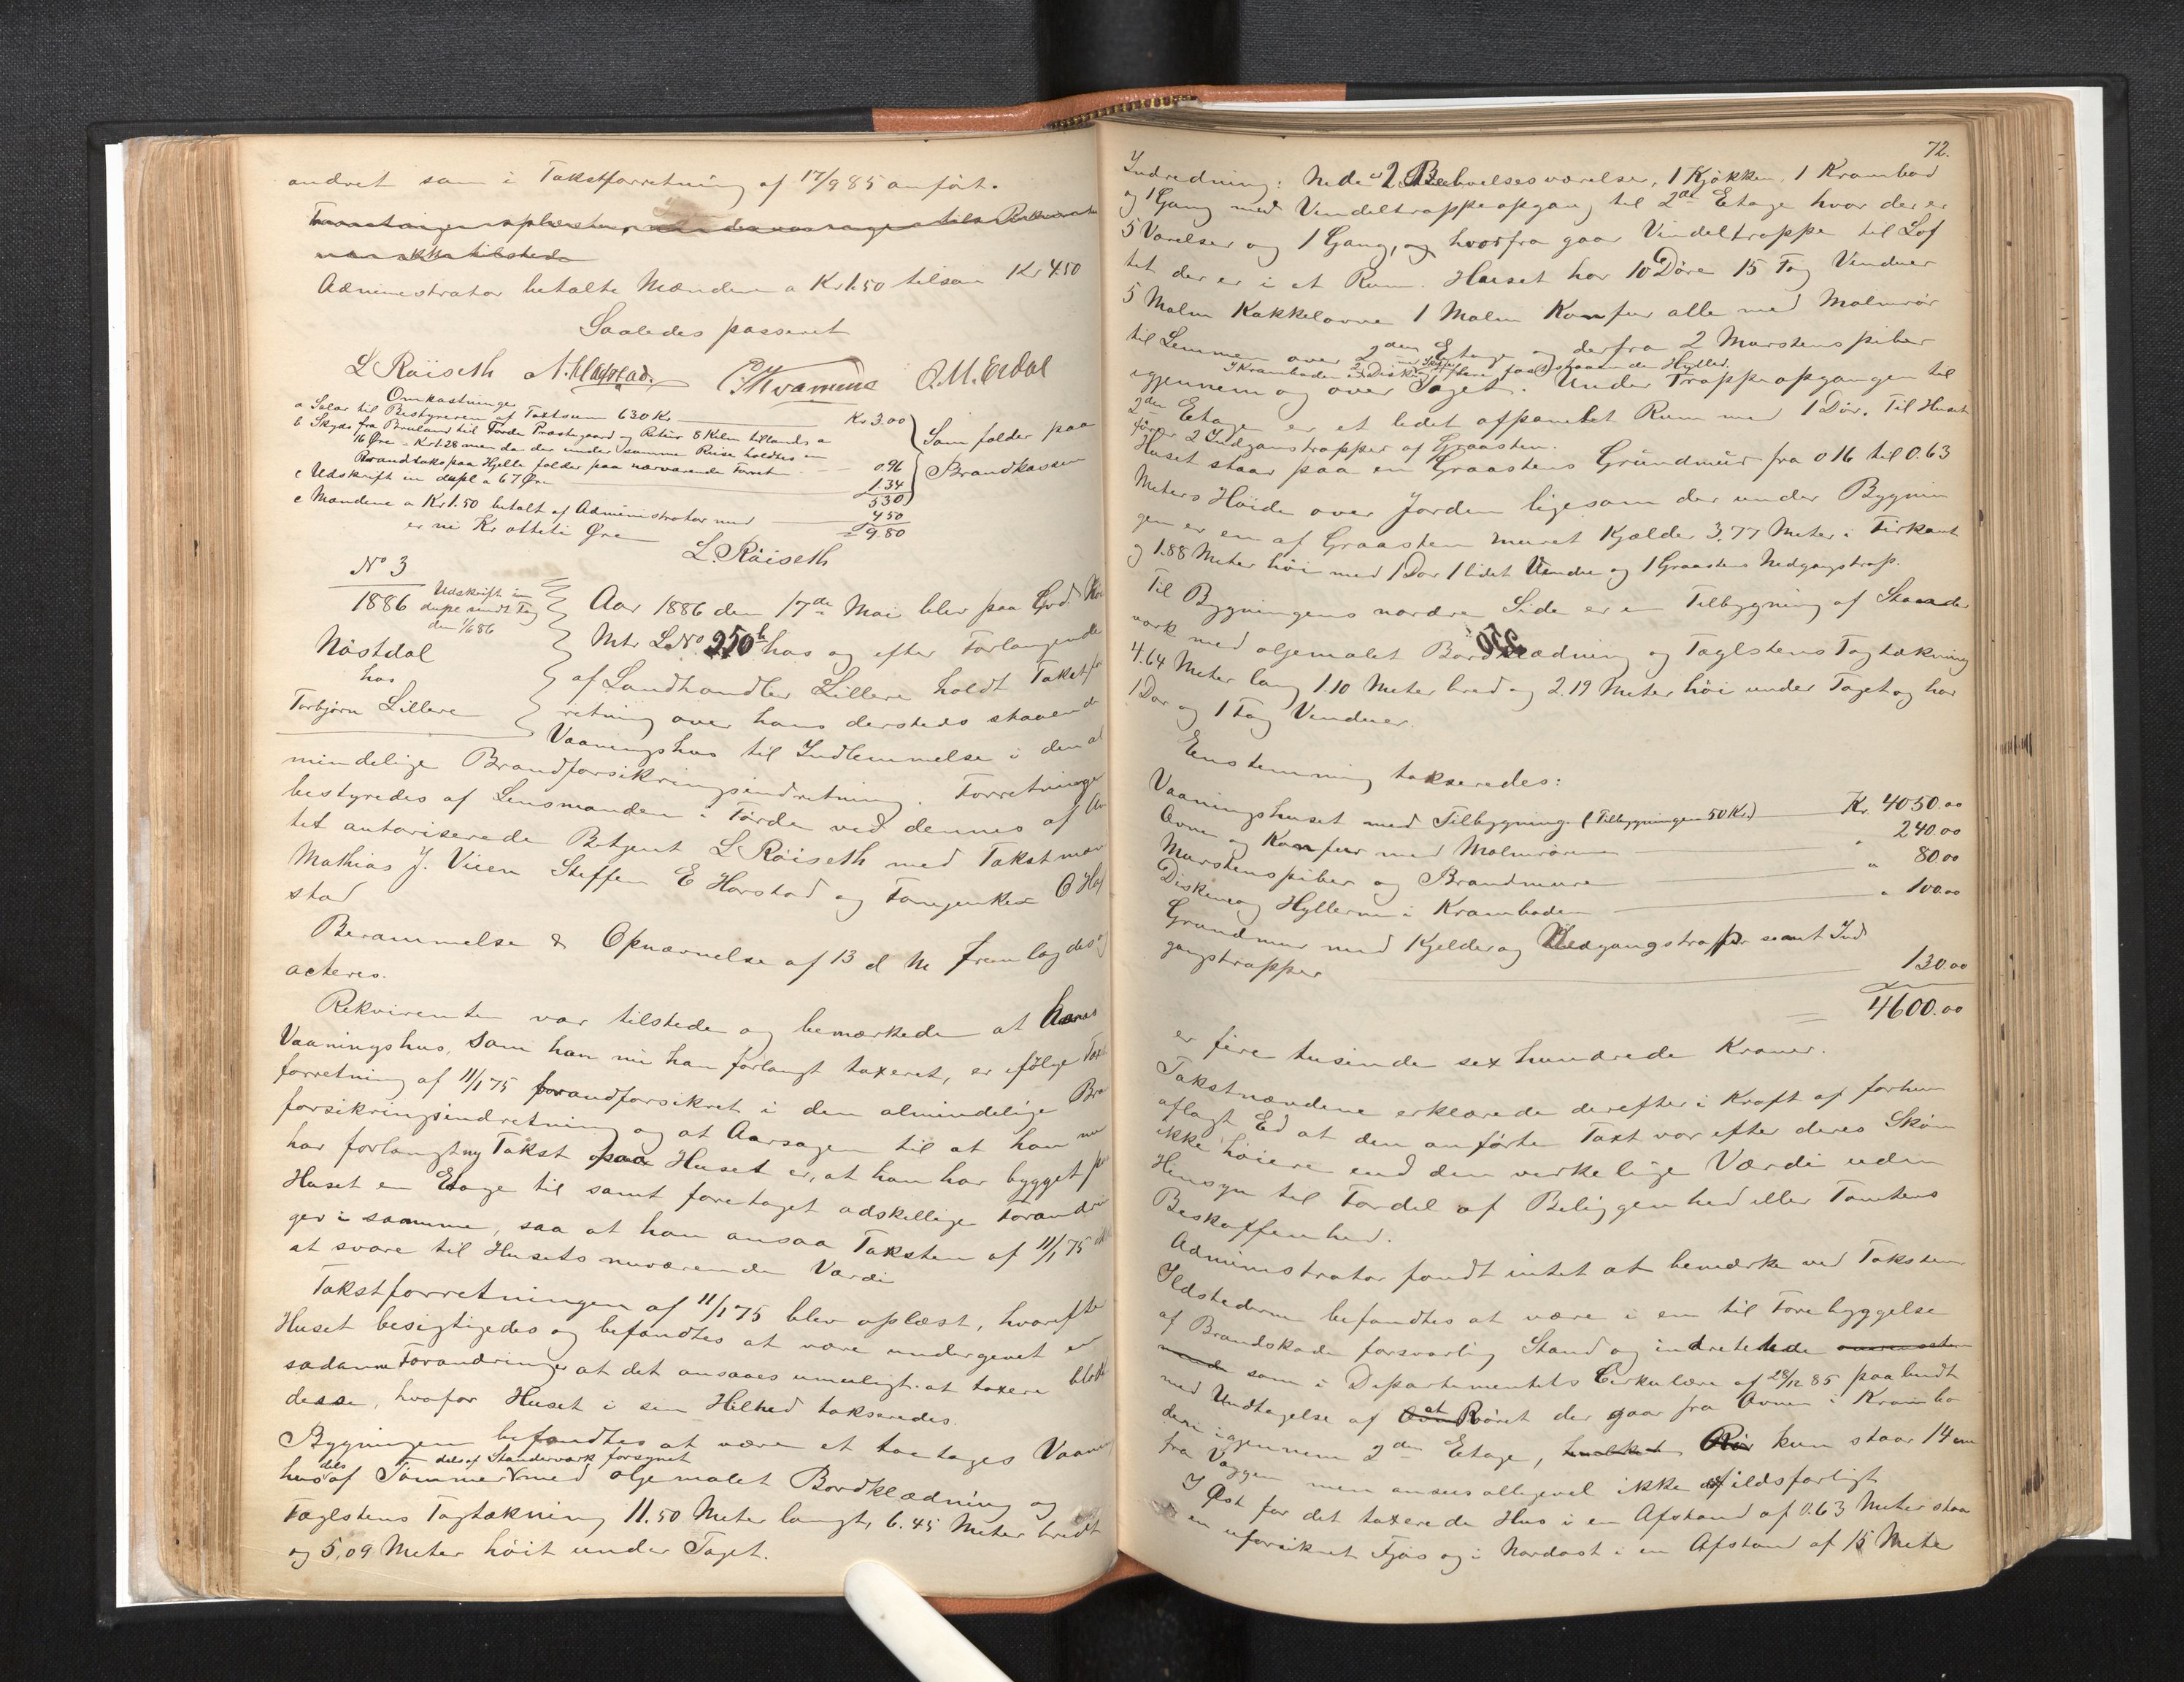 andret som i Takstforretning af 17/9 85 anført.
Forretningen oplæstes,
ikke tilstede
Administrator betalte Mændene a Kr 1.50 tilsam Kr 4.50
Saaledes passeret
L Røiseth A. M. Erdal
Omkostninger
a Salær til Bestyreren af Taxtsum 630 Kr. Kr 3.00
b Skyds fra Bruland til Førde Præstegaard og Retur 8 Kilm tillands a
16 Øre = Kr 1.28 men da der under samme Reise holdtes en
Brandtakst paa Hjelle falder paa nærværende Forret 0.96
c Udskrift in dupl a 67 Øre 1.34
5.30
Som falder paa
Brandkassen
e Mændene a Kr 1.50 betalt af Administrator med 4.50
er ni Kr otteti Øre = 9.80
L. Røiseth
No 3
1886
Udskrift in
dupl sendt Fog
den 1/6 86
Nøstdal
hos
Torbjørn Lillere
Aar 1886 den 17de Mai blev paa Grd
Mtr LNo 250b hos og efter Forlangende
af Landhandler Lillere holdt Takstfor
retning over hans dersteds staaende
Vaaningshus til Indlemmelse i den al
mindelige Brandforsikringsindretning. Forretningen
bestyredes af Lensmanden i Førde ved dennes af Am
tet autoriserede Betjent L Røiseth med Takstmæn
Mathias J. Vieen Steffen E Horstad og
stad
Berammelse & Opnævnelse af 13 d M fremlagdes og
acteres.
Rekvirenten var tilstede og bemærkede at hans
Vaaningshus, som han nu han forlangt taxeret, er ifølge Taxt
forretning af 11/1 75 forandforsikret i den almindelige Bra
forsikringsindretning og at Aarsagen til at han nu
har forlangt ny Takst paa Huset er, at han har bygget paa
Huset en Etage til samt foretaget adskillige Forandrin
ger i samme, saa at han ansaa Taksten af 11/1 75 ikke
at svare til Husets nuværende Værdi
Takstforretningen af 11/1 75 blev oplæst, hvorefter
Huset besigtigedes og befandtes at være undergivet en
sadanne Forandringer at det ansaaes umuligt at taxere blot
desse, hvofor Huset i sin Helhed takseredes.
Bygningen befandtes at være et toetages Vaanings
dels deels af Standerværk forsynet
hus af Tømmer med oljemalet Bordklædning og
Taglstens Tagtækning 11.50 Meter langt, 6.45 Meter bredt
og 5,09 Meter høit under Taget.
72.
Indredning: Nede er 2 Beboelsesværelser, 1 Kjøkken, 1 Krambod
og 1 Gang med Vindeltrappeopgang til 2den Etage hvor der er
5 Værelser og 1 Gang, og hvorfra gaar Vindeltrappe til Lof
tet der er i et Rum. Huset har 10 Døre 15 Fag Vinduer
5 Malm Kakkelovne 1 Malm Komfur alle med Malmrør
til Lemmen over 2den Etage og derfra 2 Murstenspiber
I Kramboden 2 Diske og flere faststaaende Hylder.
igjennem og over Taget. Under Trappeopgangen til
2den Etage er et lidet afpanelet Rum med 1 Dør. Til Huset
fører 2 Indgangstrapper af Graasten.
Huset staar paa en Graastens Grundmur fra 0.16 til 0.63
Meters Høide over Jorden ligesom der under Bygnin
gen er en af Graasten muret Kjælder 3.77 Meter i Firkant
og 1.88 Meter høi med 1 Dør 1 lidet Vindue og 1 Graastens Nedgangstrap.
Til Bygningens nordre Side er en Tilbygning af Stander
værk med oljemalet Bordklædning og Taglstens Tagtækning
4.64 Meter lang 1.10 Meter bred og 2.19 Meter høi under Taget og har
1 Dør og 1 Fag Vinduer.
Eenstemmig takseredes:
Vaaningshuset med Tilbygning. (Tilbygningen 50 Kr.) Kr. 4050.00
Ovne og Komfur med Malmrørene " 240.00
Murstenspiber og Brandmure " 80.00
Diskene og Hyllerne i Kramboden " 100.00
Grundmur med Kjelder og Nedgangstrappe samt Ind
gangstrapper 130.00
= 4600.00
er fire tusinde sex hundrede Kroner.
Takstmændene erklærede derefter i Kraft af forhen
aflagt Ed at den anførte Taxt var efter deres Skjøn
ikke høiere end den virkelige Værdi uden
Hensyn til Fordel af Beliggenhed eller Tomtens
Beskaffenhed.
Administrator fandt intet at bemærke ved Taksten
Ildstederne befandtes at være i en til Forebyggelse
af Brandskade forsvarlig Stand og indrettede
som i Departementets Cirkulære af 28/12 85 paabudt
med Undtagelse af at Røret der gaar fra Ovnen i Krambo
den igjennem 2den Etage, hvilket Rør kun staar 14 cm
fra Væggen men ansees alligevel ikke ildsfarligt
I Øst for det taxerede Hus i en Afstand af 0.63 Meter staar
en uforsikret Fjøs og i Nordøst i en Afstand af 15 Meter